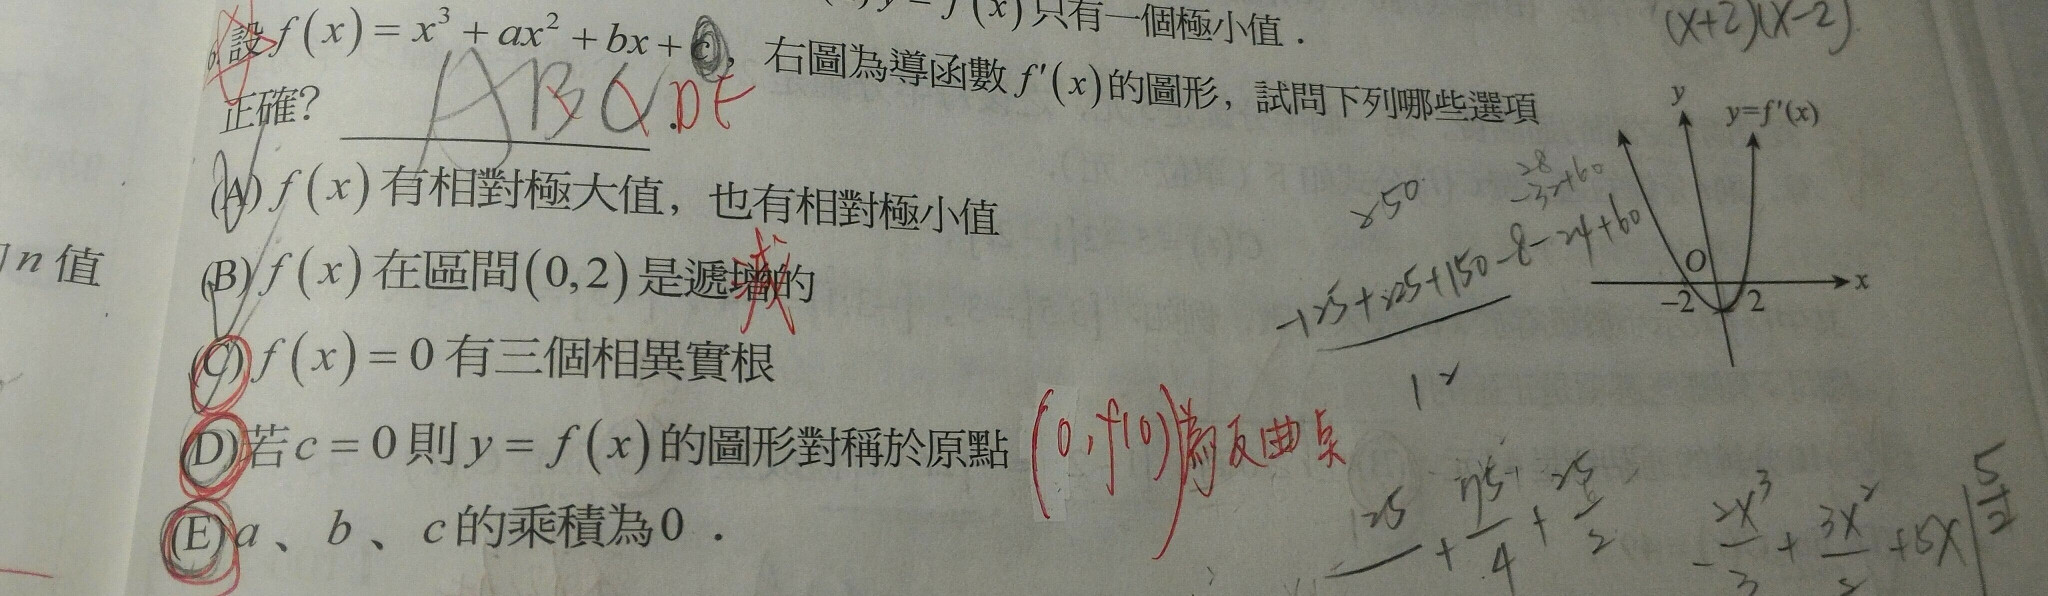 y = f(x) 只有一個極小值．
(x+2)(x-2)
設 f(x) = x³ + ax² + bx + c，右圖為導函數 f'(x) 的圖形，試問下列哪些選項
正確?
A B C .DE
y
y=f'(x)
O
-2
2
x
(A) f(x) 有相對極大值，也有相對極小值
250
28
-32+60
-125+225+150-8-24+60
n 值
(B) f(x) 在區間(0,2)是遞增的
減
(C) f(x) = 0 有三個相異實根
12
(D)若 c = 0 則 y = f(x) 的圖形對稱於原點
(0,f(0))為反曲點
(E) a 、 b 、 c 的乘積為0 ．
125 + 75/4 + 25/2
-2x³/3 + 3x²/2 + 5x | 5/2